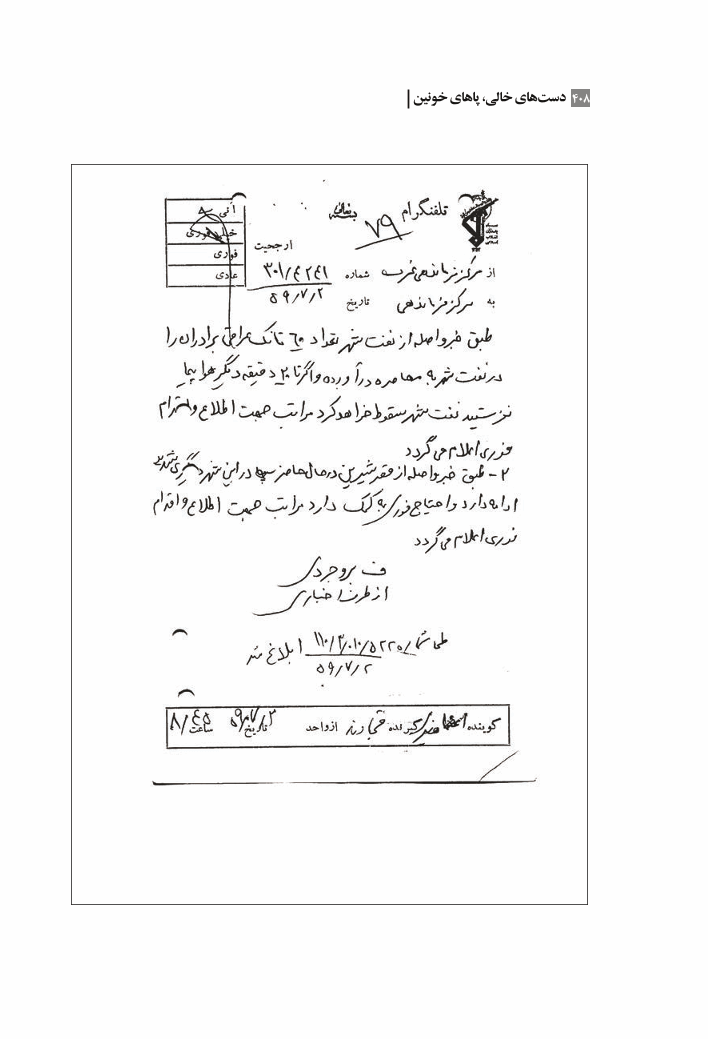 ۴۰۸ دست‌های خالی، پاهای خونین
تلفنگرام
۷۹
آنی
خیلی فوری
فوری
عادی
ارجحیت
از مرکز فرماندهی غرب شماره ۳۰۱/۴۲۴۱
به مرکز فرماندهی تاریخ ۵۹/۷/۲
طبق خبر واصله از نفت شهر تعداد ۶۰ تانک عراقی برادران را
در نفت شهر به محاصره درآورده و اگر تا ۲۰ دقیقه دیگر هواپیما
نفرستید نفت شهر سقوط خواهد کرد مراتب جهت اطلاع و اقدام
فوری اعلام می گردد
۲ - طبق خبر واصله از قصرشیرین در حال حاضر در این شهر درگیری شدید
ادامه دارد و احتیاج فوری به کمک دارد مراتب جهت اطلاع و اقدام
فوری اعلام می گردد
ف بروجردی
از طرف اخباری
طی شماره ۱۱۰/۳/۰۱۰/۵۲۲۰ ابلاغ شد
۵۹/۷/۲
گوینده گیرنده از واحد تاریخ ۵۹/۷/۲ ساعت ۸/۴۵